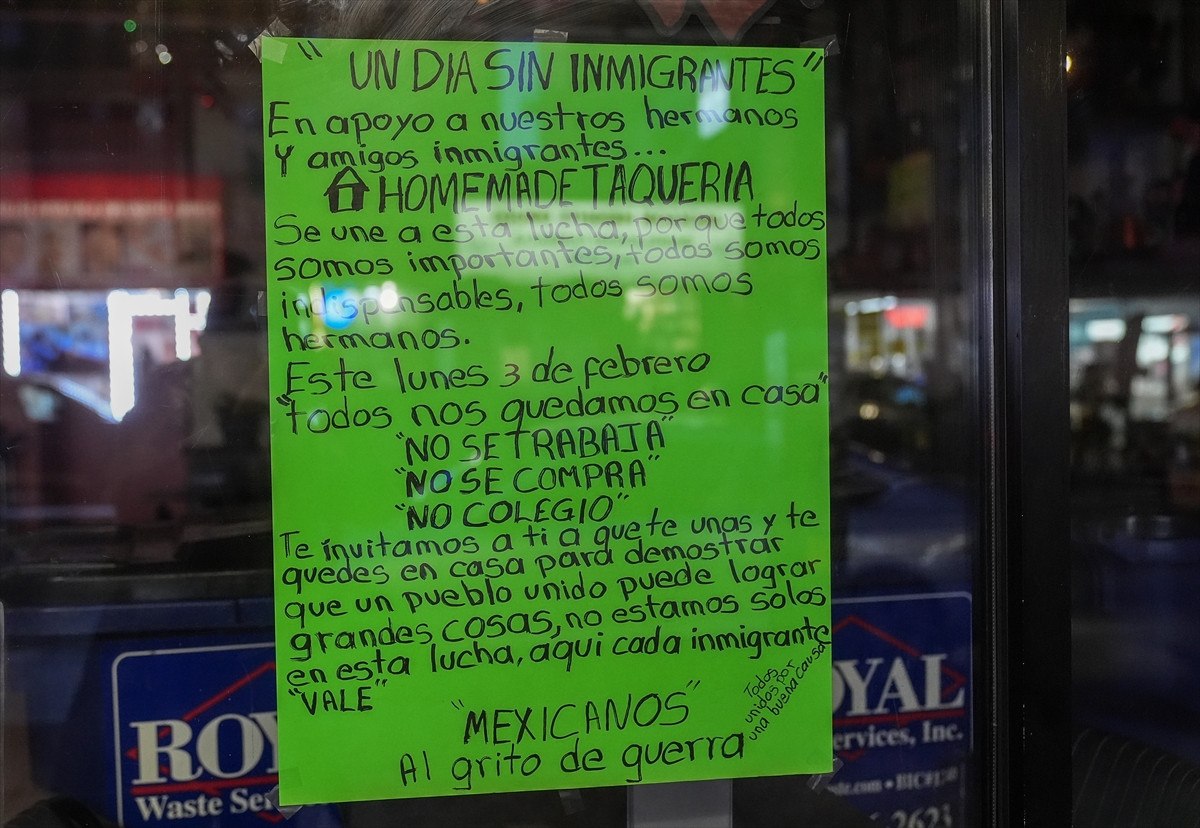 " UN DIA SIN INMIGRANTES"
En apoyo a nuestros hermanos
Y amigos inmigrantes...
HOMEMADE TAQUERIA
Se une a esta lucha, por que todos
somos importantes, todos somos
indispensables, todos somos
hermanos.
Este lunes 3 de febrero
"todos nos quedamos en casa"
"NO SE TRABAJA"
"NO SE COMPRA"
"NO COLEGIO"
Te invitamos a ti a que te unas y te
quedes en casa para demostrar
que un pueblo unido puede lograr
grandes cosas, no estamos solos
en esta lucha, aqui cada inmigrante
"VALE"
Todos
unidos por
una buena causa
"MEXICANOS"
Al grito de guerra
ROY
Waste Ser
OYAL
ervices, Inc.
2623